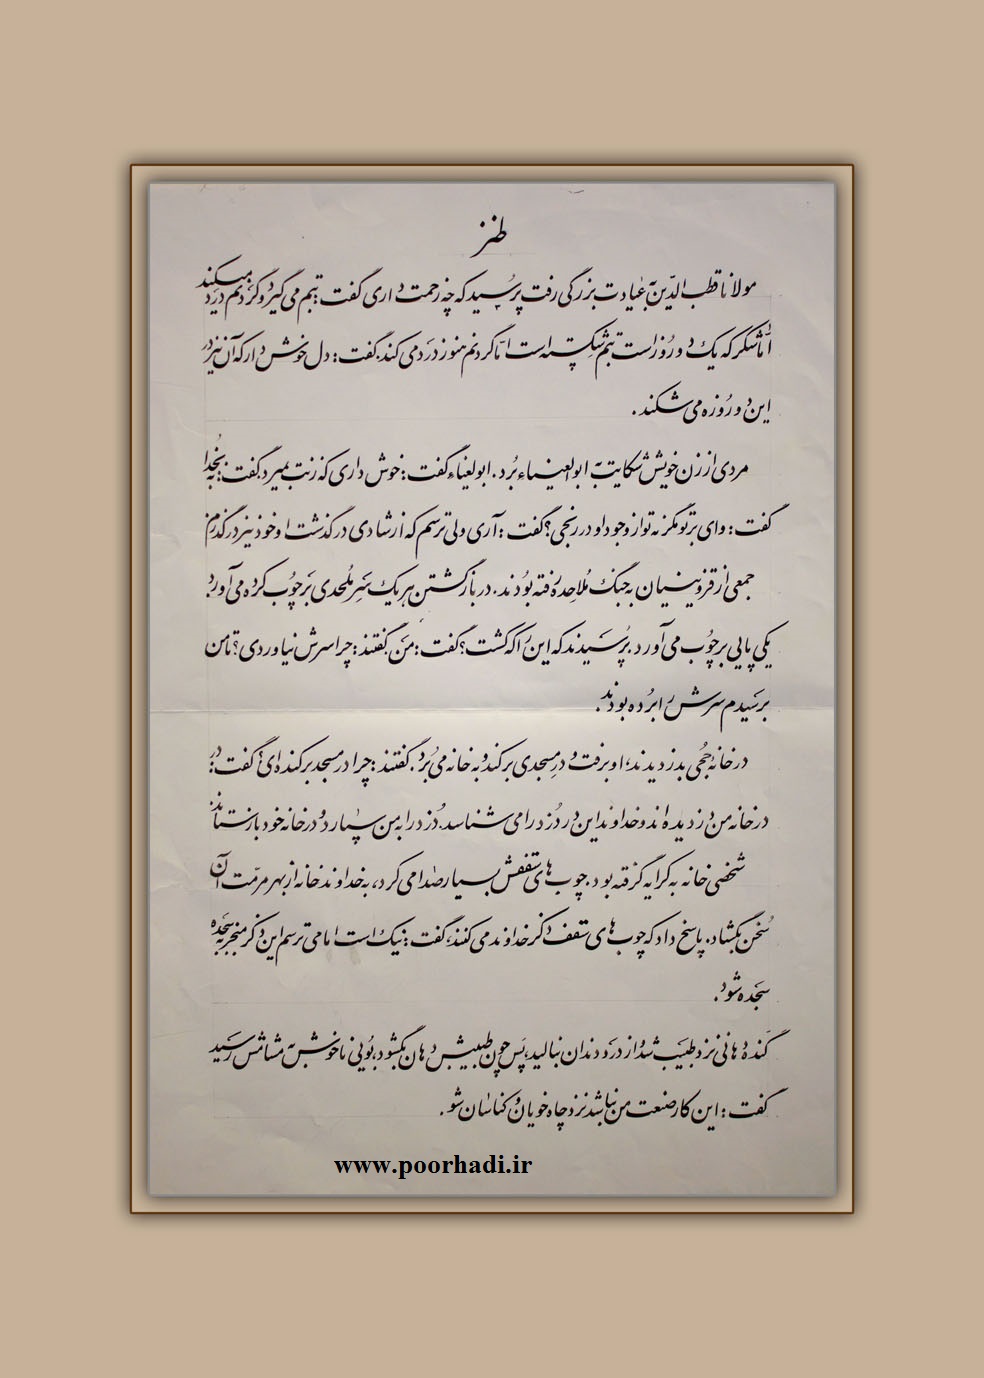 طنز
مولانا قطب الدین به عیادت بزرگی رفت پرسید که چه زحمت داری گفت: تبم می گیرد و گردنم درد میکند
اما شکر که یک دو روز است تبم شکسته است اما گردنم هنوز درد می کند. گفت: دل خوش دار که آن نیز در
این دو روزه می شکند.
مردی از زن خویش شکایت به ابوالعیناء برد. ابوالعیناء گفت: خوش داری که زنت بمیرد. گفت: نه بخدا
گفت: وای بر تو مگر نه تو از وجود او در رنجی؟ گفت: آری ولی ترسم که از شادی درگذشت او خود نیز درگذرم
جمعی از قزوینیان به جنگ ملاحده رفته بودند. در بازگشتن هر یک سر ملحدی بر چوب کرده می آورد
یکی پایی بر چوب می آورد. پرسیدند که این را که کشت؟ گفت: من. گفتند: چرا سرش نیاوردی؟ تا من
برسیدم سرش را برده بودند.
در خانه جحی بدزدیدند، او برفت و در مسجدی برکند و به خانه می برد. گفتند: چرا در مسجد برکنده ای؟ گفت:
در خانه من دزدیده اند و خداوند این در دزد را می شناسد. دزد را به من سپارد و در خانه خود بازستاند
شخصی خانه به کرایه گرفته بود. چوب های سقفش بسیار صدا می کرد، به خداوند خانه از بهر مرمت آن
سخن بگشاد. پاسخ داد که چوب های سقف ذکر خداوند می کنند، گفت: نیک است اما می ترسم این ذکر منجر به سجده
سجده شود.
گنده دهانی نزد طبیب شد و از درد دندان نبالید، پس چون طبیبش دهان بگشود، بویی ناخوش به مشامش رسید
گفت: این کار صنعت من نباشد نزد چاه خویان و کناسان شو.
www.poorhadi.ir